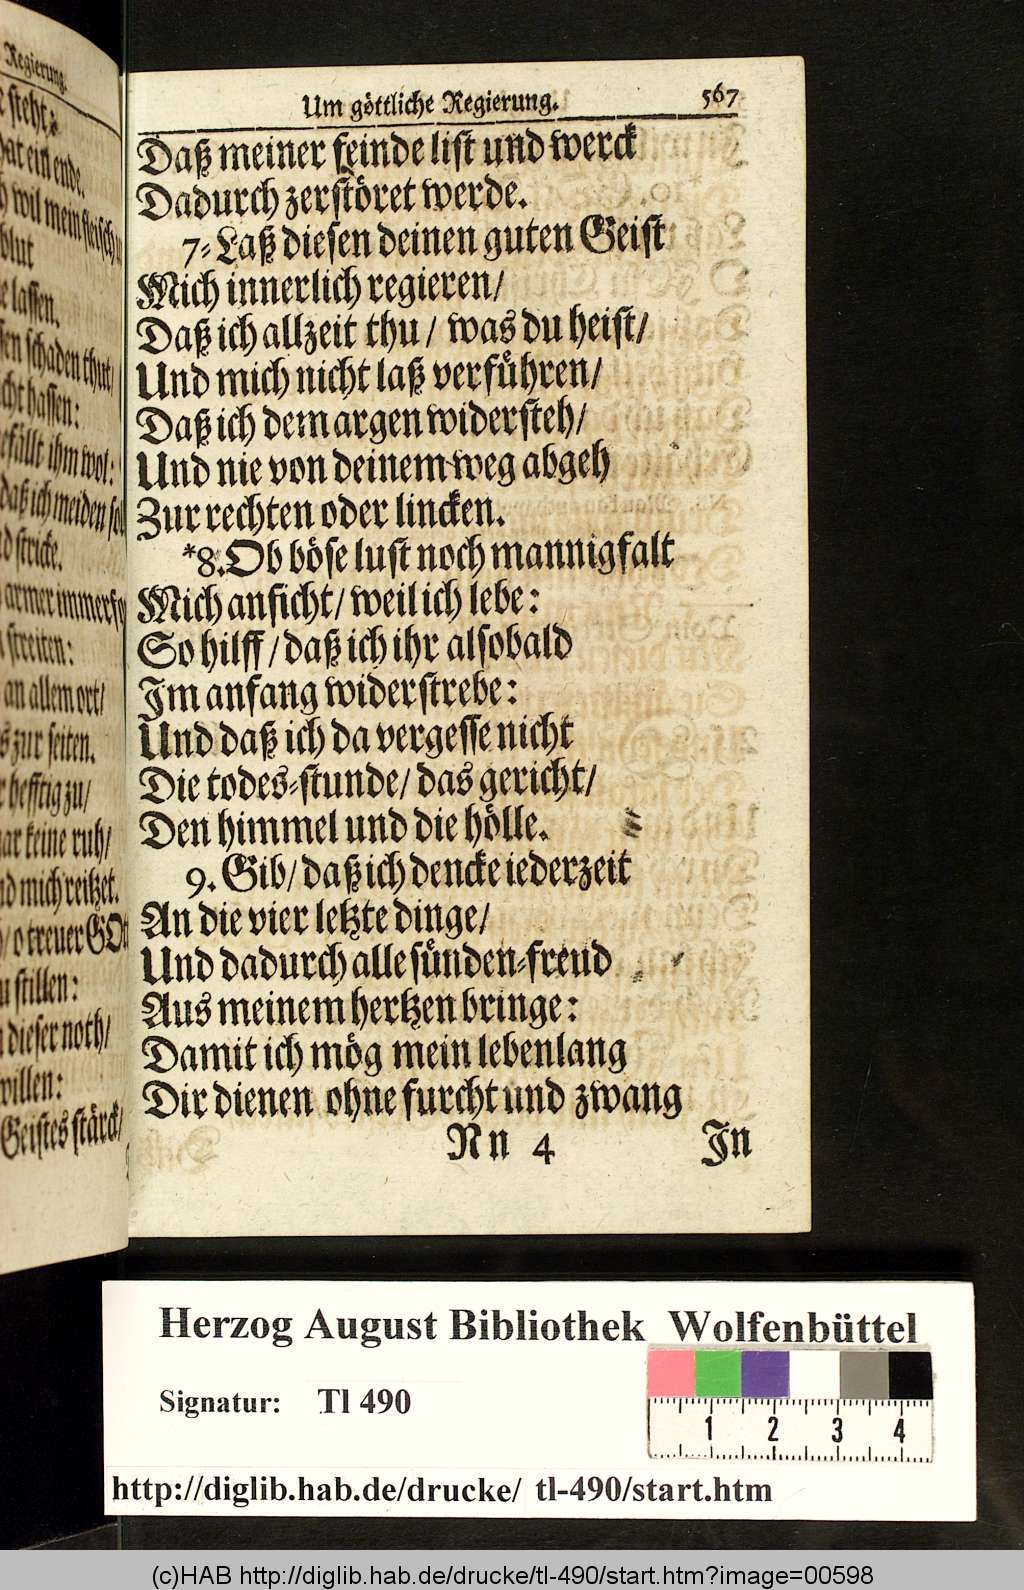 Regierung.
steht:
hat ein ende.
wil mein fleisch
blut
lassen.
schaden thut/
hassen:
gefällt ihm wol:
daß ich meiden sol
stricke.
armer immerfort
streiten:
an allem ort/
zur seiten.
hefftig zu/
gar keine ruh/
und mich reitzet.
o treuer GOtt
zu stillen:
dieser noth/
willen:
Geistes stärck/
Um göttliche Regierung. 567
Daß meiner feinde list und werck
Dadurch zerstöret werde.
7. Laß diesen deinen guten Geist
Mich innerlich regieren/
Daß ich allzeit thu/ was du heist/
Und mich nicht laß verführen/
Daß ich dem argen widersteh/
Und nie von deinem weg abgeh
Zur rechten oder lincken.
*8. Ob böse lust noch mannigfalt
Mich anficht/ weil ich lebe:
So hilff/ daß ich ihr alsobald
Im anfang widerstrebe:
Und daß ich da vergesse nicht
Die todes-stunde/ das gericht/
Den himmel und die hölle.
9. Gib/ daß ich dencke iederzeit
An die vier letzte dinge/
Und dadurch alle sünden-freud
Aus meinem hertzen bringe:
Damit ich mög mein lebenlang
Dir dienen ohne furcht und zwang
Nn 4 In
Herzog August Bibliothek Wolfenbüttel
Signatur: Tl 490
1 2 3 4
http://diglib.hab.de/drucke/ tl-490/start.htm
(c)HAB http://diglib.hab.de/drucke/tl-490/start.htm?image=00598